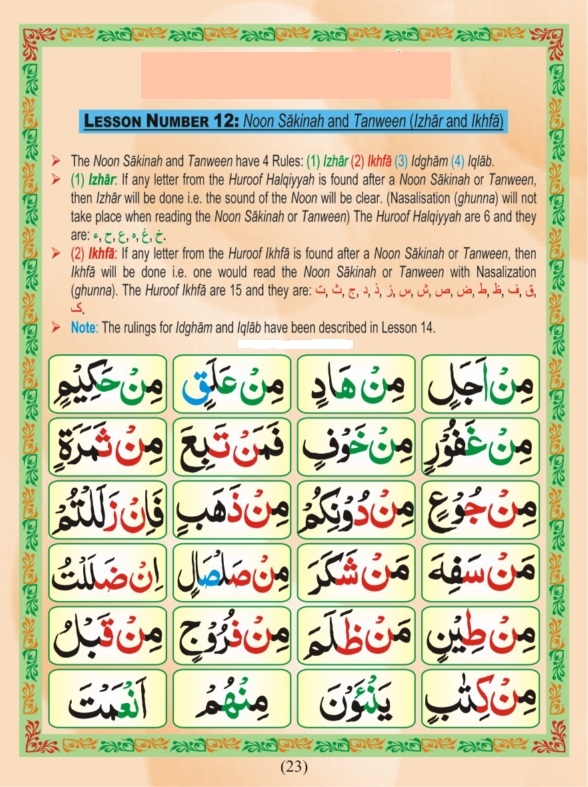 LESSON NUMBER 12: Noon Sākinah and Tanween (Izhār and Ikhfā)
➤ The Noon Sākinah and Tanween have 4 Rules: (1) Izhār (2) Ikhfā (3) Idghām (4) Iqlāb.
➤ (1) Izhār: If any letter from the Huroof Halqiyyah is found after a Noon Sākinah or Tanween,
then Izhār will be done i.e. the sound of the Noon will be clear. (Nasalisation (ghunna) will not
take place when reading the Noon Sākinah or Tanween) The Huroof Halqiyyah are 6 and they
are: ء, ح, ع, ہ, غ, خ.
➤ (2) Ikhfā: If any letter from the Huroof Ikhfā is found after a Noon Sākinah or Tanween, then
Ikhfā will be done i.e. one would read the Noon Sākinah or Tanween with Nasalization
(ghunna). The Huroof Ikhfā are 15 and they are: ت, ث, ج, د, ذ, ز, س, ش, ص, ض, ط, ظ, ف, ق,
ک.
➤ Note: The rulings for Idghām and Iqlāb have been described in Lesson 14.
مِنْ اَجَلٍ مِنْ هَادٍ مِنْ عَلَقٍ مِنْ حَكِيْمٍ
مِنْ غَفُوْرٍ مِنْ خَوْفٍ فَمَنْ تَبِعَ مِنْ ثَمَرَةٍ
مِنْ جُوْعٍ مِنْ دُوْنِكُمْ مِنْ ذَهَبٍ فَاِنْ زَلَلْتُمْ
مَنْ سَفِهَ مَنْ شَكَرَ مِنْ صَلْصَالٍ اِنْ ضَلَلْتُ
مِنْ طِيْنٍ مَنْ ظَلَمَ مِنْ فُرُوْجٍ مِنْ قَبْلُ
مِنْ كِتٰبٍ يَنْئَوْنَ مِنْهُمْ اَنْعَمْتَ
(23)